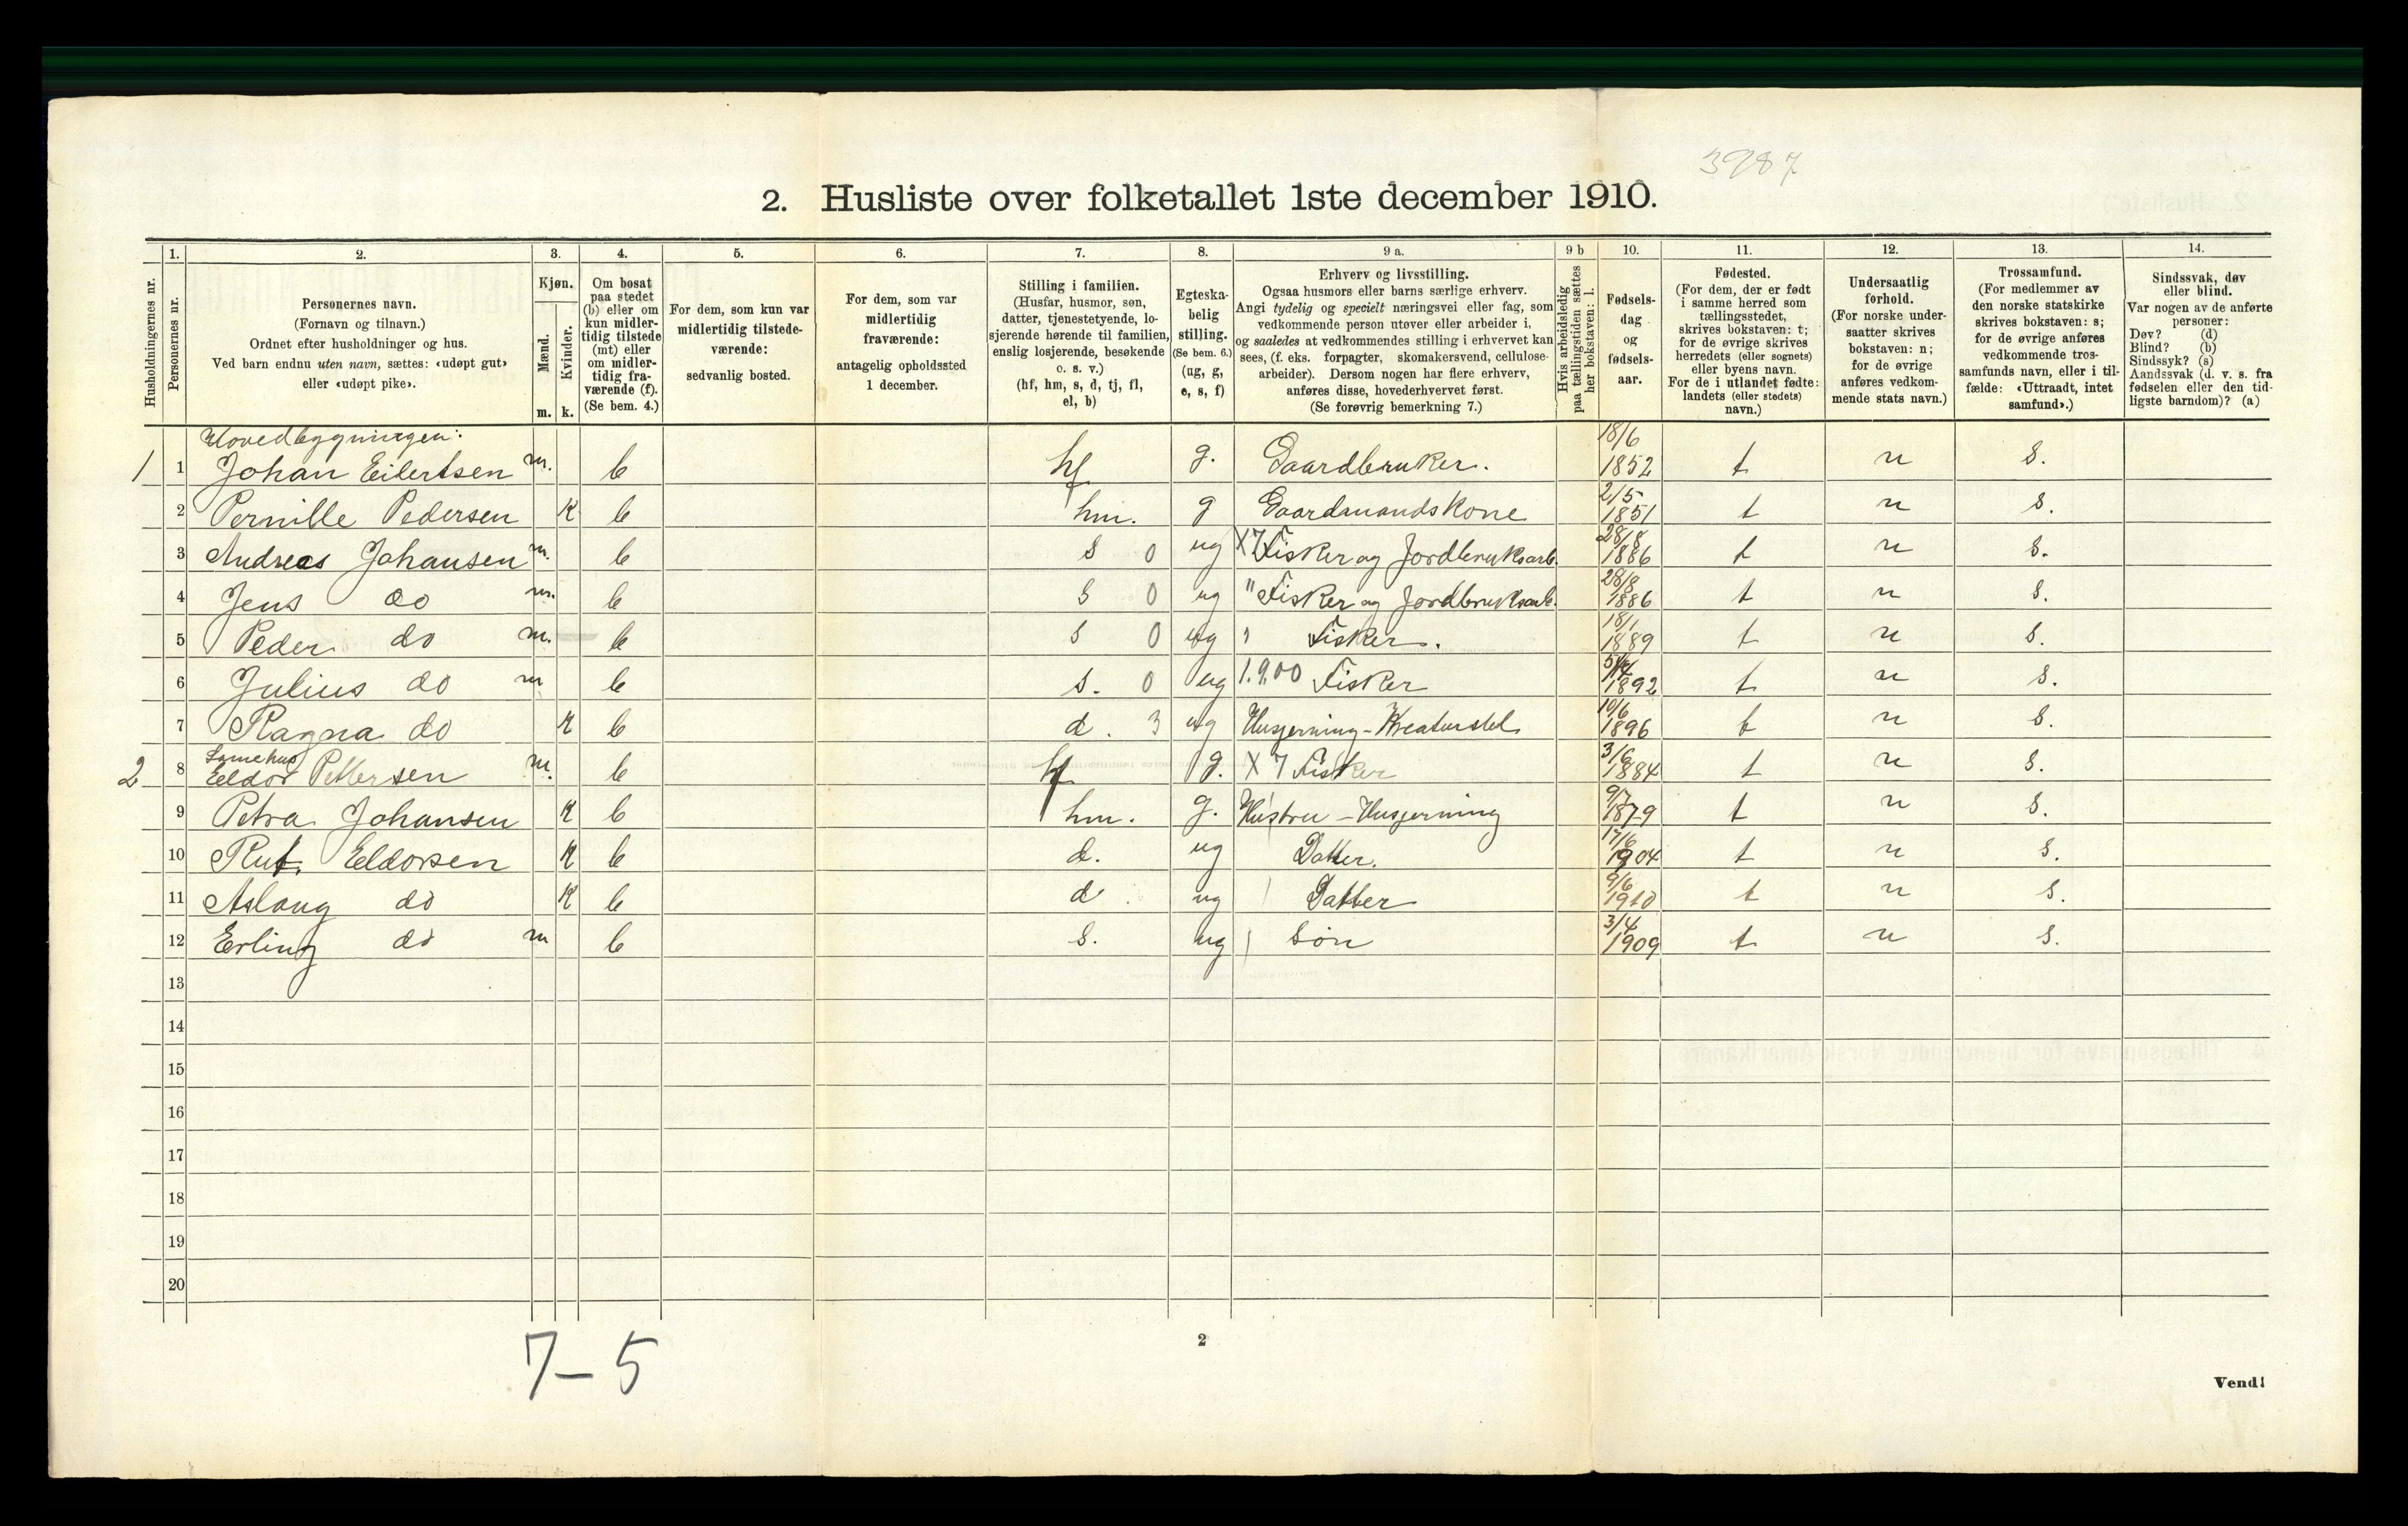 3987
2. Husliste over folketallet 1ste december 1910.
Husholdningernes nr.
1.
Personernes nr.
2.
Personernes navn.
(Fornavn og tilnavn.)
Ordnet efter husholdninger og hus.
Ved barn endnu uten navn, sættes: «udøpt gut»
eller «udøpt pike».
3.
Kjøn.
Mænd.
Kvinder.
m. k.
4.
Om bosat
paa stedet
(b) eller om
kun midler-
tidig tilstede
(mt) eller
om midler-
tidig fra-
værende (f).
(Se bem. 4.)
5.
For dem, som kun var
midlertidig tilstede-
værende:
sedvanlig bosted.
6.
For dem, som var
midlertidig
fraværende:
antagelig opholdssted
1 december.
7.
Stilling i familien.
(Husfar, husmor, søn,
datter, tjenestetyende, lo-
sjerende hørende til familien,
enslig losjerende, besøkende
o. s. v.)
(hf, hm, s, d, tj, fl,
el, b)
8.
Egteska-
belig
stilling.
(Se bem. 6.)
(ug, g,
e, s, f)
9 a.
Erhverv og livsstilling.
Ogsaa husmors eller barns særlige erhverv.
Angi tydelig og specielt næringsvei eller fag, som
vedkommende person utøver eller arbeider i,
og saaledes at vedkommendes stilling i erhvervet kan
sees, (f. eks. forpagter, skomakersvend, cellulose-
arbeider). Dersom nogen har flere erhverv,
anføres disse, hovederhvervet først.
(Se forøvrig bemerkning 7.)
9 b
Hvis arbeidsledig
paa tællingstiden sættes
her bokstaven: l.
10.
Fødsels-
dag
og
fødsels-
aar.
11.
Fødested.
(For dem, der er født
i samme herred som
tællingsstedet,
skrives bokstaven: t;
for de øvrige skrives
herredets (eller sognets)
eller byens navn.
For de i utlandet fødte:
landets (eller stedets)
navn.)
12.
Undersaatlig
forhold.
(For norske under-
saatter skrives
bokstaven: n;
for de øvrige
anføres vedkom-
mende stats navn.)
13.
Trossamfund.
(For medlemmer av
den norske statskirke
skrives bokstaven: s;
for de øvrige anføres
vedkommende tros-
samfunds navn, eller i til-
fælde: «Uttraadt, intet
samfund».)
14.
Sindssvak, døv
eller blind.
Var nogen av de anførte
personer:
Døv? (d)
Blind? (b)
Sindssyk? (s)
Aandssvak (d. v. s. fra
fødselen eller den tid-
ligste barndom)? (a)
Hovedbygningen:
1 1 Johan Eilertsen m. b hf g. Gaardbruker. 18/6 1852 t n s.
2 Pernille Pedersen k b hm. g Gaardmandskone 2/5 1851 t n s.
3 Andreas Johansen m. b s 0 ug X7 Fisker og Jordbruksarb. 28/8 1886 t n s.
4 Jens do m. b s 0 ug " Fisker og Jordbruksarb. 28/8 1886 t n s.
5 Peder do m. b s 0 ug " Fisker. 18/1 1889 t n s.
6 Julius do m b s. 0 ug 1.9.00 Fisker 1892 t n s.
7 Ragna do k b d. 3 ug Husgjerning - Kreaturstel 10/6 1896 t n s.
Samehus
2 8 Eeldor Pettersen m. b hf g. X 7 Fisker 3/6 1884 t n s.
9 Petra Johansen k b hm. g. Hustru - Husgjerning 9/7 1879 t n s.
10 Rut Eeldorsen k b d. ug Datter. 17/6 1904 t n s.
11 Aslaug do k b d ug Datter 9/6 1910 t n s.
12 Erling do m b s. ug Søn 3/4 1909 t n s.
13
14
15
16
17
18
19
20
7-5
2
Vend!